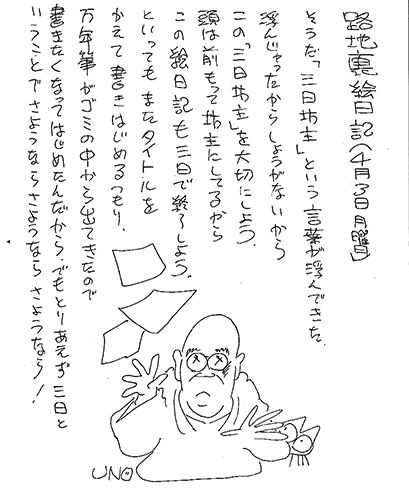 路地裏絵日記(4月3日月曜)
そうだ「三日坊主」という言葉が浮んできた
浮んじゃったからしょうがないから
この「三日坊主」を大切にしよう.
頭は前もって坊主にしてるから
この絵日記も三日で終ろしよう.
といっても またタイトルを
かえて書きはじめるつもり.
万年筆がゴミの中から出てきたので
書きたくなってはじめたんだから.でもとりあえず三日と
いうことでさようならさようなら さようなら!
UNO